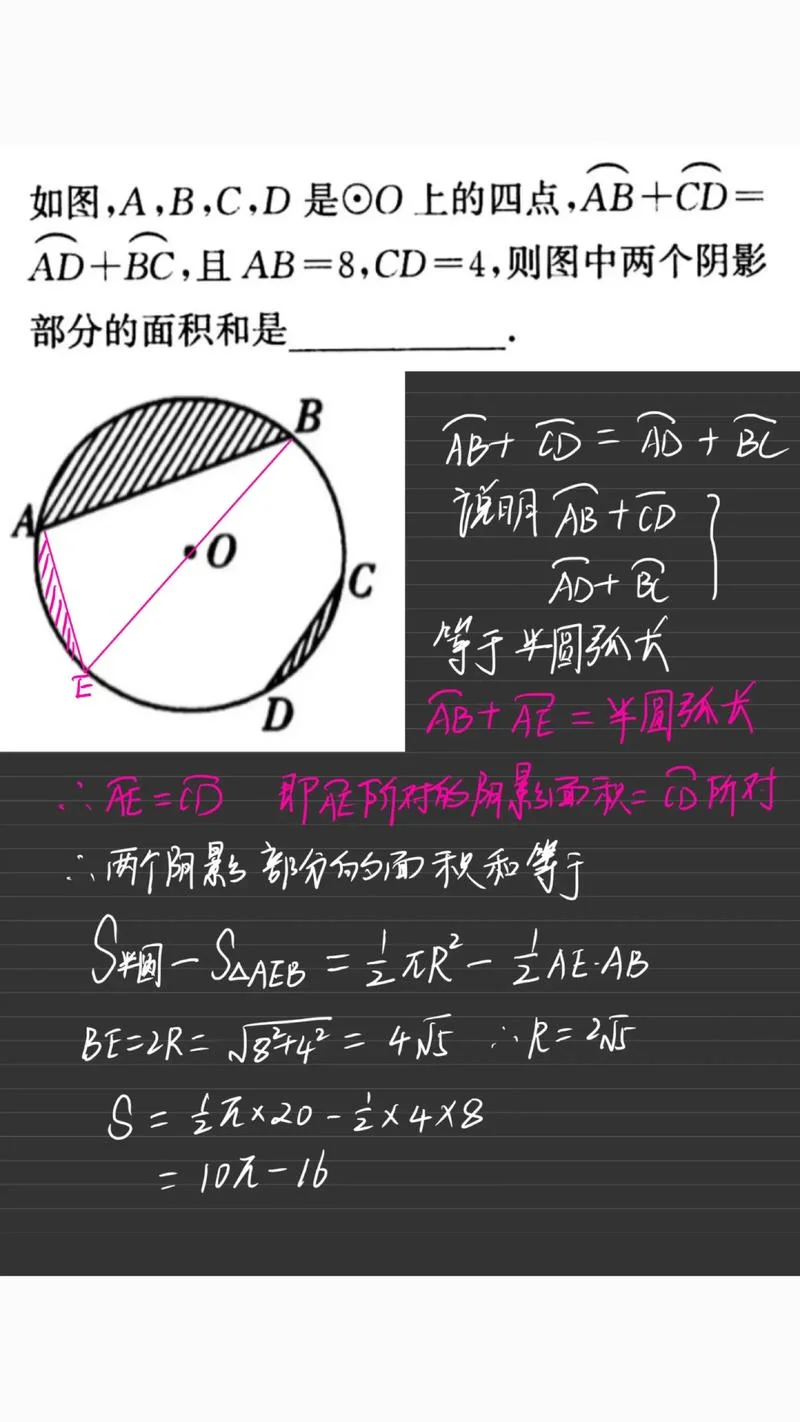 如图,A,B,C,D 是⊙O 上的四点,⌒AB+⌒CD=
⌒AD+⌒BC,且 AB=8,CD=4,则图中两个阴影
部分的面积和是____________.
B
A
O
C
E
D
⌒AB+⌒CD=⌒AD+⌒BC
说明⌒AB+⌒CD
⌒AD+⌒BC
等于半圆弧长
⌒AB+⌒AE=半圆弧长
∴⌒AE=⌒CD 即⌒AE所对的阴影面积=⌒CD所对
∴两个阴影部分的面积和等于
S半圆-S△AEB=½πR²-½AE·AB
BE=2R=√(8²+4²)=4√5 ∴R=2√5
S=½π×20-½×4×8
=10π-16